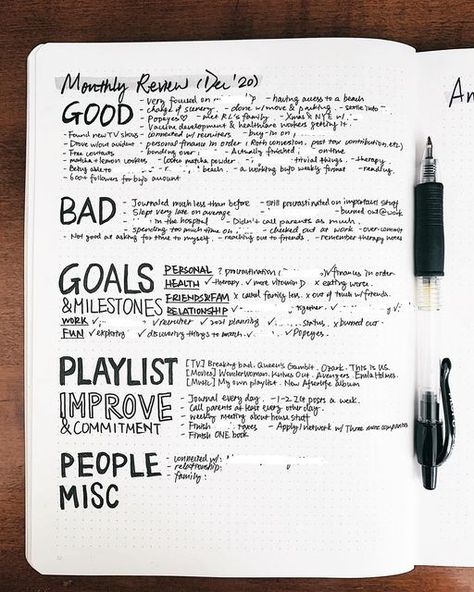 Monthly Review (Dec '20)
GOOD
- very focused on - having access to a beach
- change of scenery - done w/ move & packing - settle into
- Popeyes♡ - met RL's family - Xmas & NYE w/
- Vaccine development & healthcare workers getting it
- Found new TV shows - connected w/ recruiters - buy-in on
- Drove w/out incident - personal finance in order (Roth conversion, post tax contribution, etc)
- Free contacts - bonding over - Actually finished on time
- matcha + lemon cookies - matcha powder - trivial things - therapy
- Being able to beach - a working bujo weekly format - reading
- 600+ followers for bujo account
BAD
- Journaled much less than before - still procrastinated on important stuff
- Slept very late on average - burned out @work
- in the hospital - Didn't call parents as much
- spending too much time on - checked out at work - over-commit
- Not good at asking for time to myself - reaching out to friends - remember therapy notes
GOALS & MILESTONES
PERSONAL ? procrastination finances in order
HEALTH ✓ therapy ✓ more vitamin D x eating worse
FRIENDS&FAM x called family less x out of touch w/ friends
RELATIONSHIP ✓ together ✓
WORK ✓ ✓ recruiter ✓ 2021 planning ✓ status x burned out
FUN ✓ exploring ✓ discovering things to watch ✓ ✓ Popeyes
PLAYLIST
[TV] Breaking bad. Queen's Gambit. Ozark. This is US.
[Movies] WonderWoman. Knives Out. Avengers. Enola Holmes.
[Music] My own playlist. New Afterlife album
IMPROVE & COMMITMENT
- Journal every day. - 1-2 IG posts a week.
- Call parents at least every other day.
- weekly meeting about house stuff
- Finish taxes - Apply/Network w/ Three more companies
- Finish ONE book
PEOPLE
- connected w/:
- relationship:
- family:
MISC
An